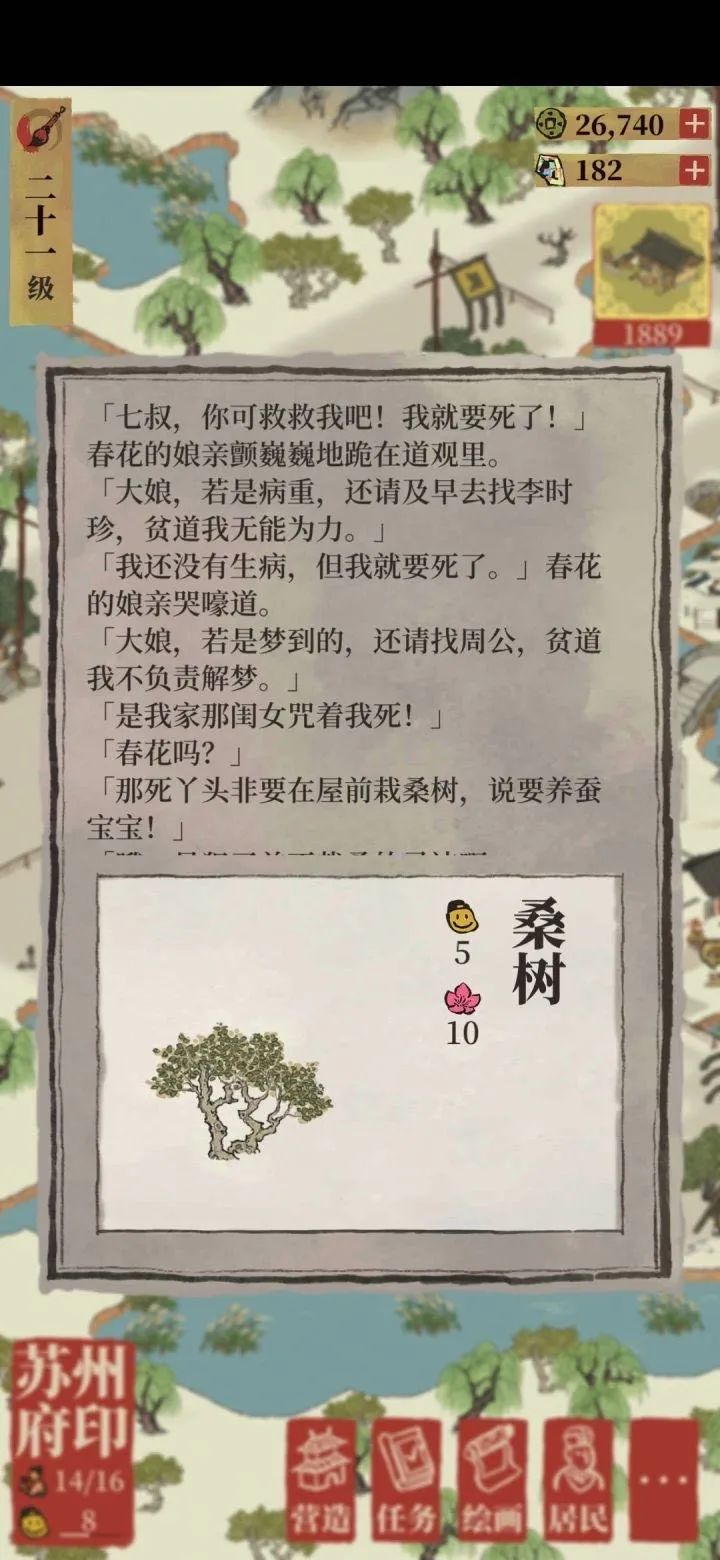 二十一级
26,740
182
1889
「七叔，你可救救我吧！我就要死了！」
春花的娘亲颤巍巍地跪在道观里。
「大娘，若是病重，还请及早去找李时
珍，贫道我无能为力。」
「我还没有生病，但我就要死了。」春花
的娘亲哭嚎道。
「大娘，若是梦到的，还请找周公，贫道
我不负责解梦。」
「是我家那闺女咒着我死！」
「春花吗？」
「那死丫头非要在屋前栽桑树，说要养蚕
宝宝！」
桑树
5
10
苏州
府印
14/16
8
营造
任务
绘画
居民
...